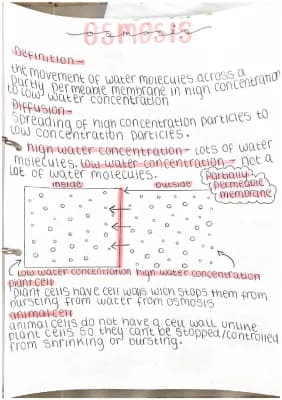 osmosis
osmosis
Definition -
the movement of water molecules across a
partly permeable membrane in high concentration
to low water concentration
Diffusion -
spreading of high concentration particles to
low concentration particles.
high water concentration - lots of water
molecules. low water concentration - not a
lot of water molecules.
Partially
permeable
membrane
inside
outside
low water concentration high water concentration
plant cell
Plant cells have cell walls wich stops them from
bursting from water from osmosis
animal cell
animal cells do not have a cell wall unlike
plant cells so they cant be stopped/controlled
from shrinking or bursting.